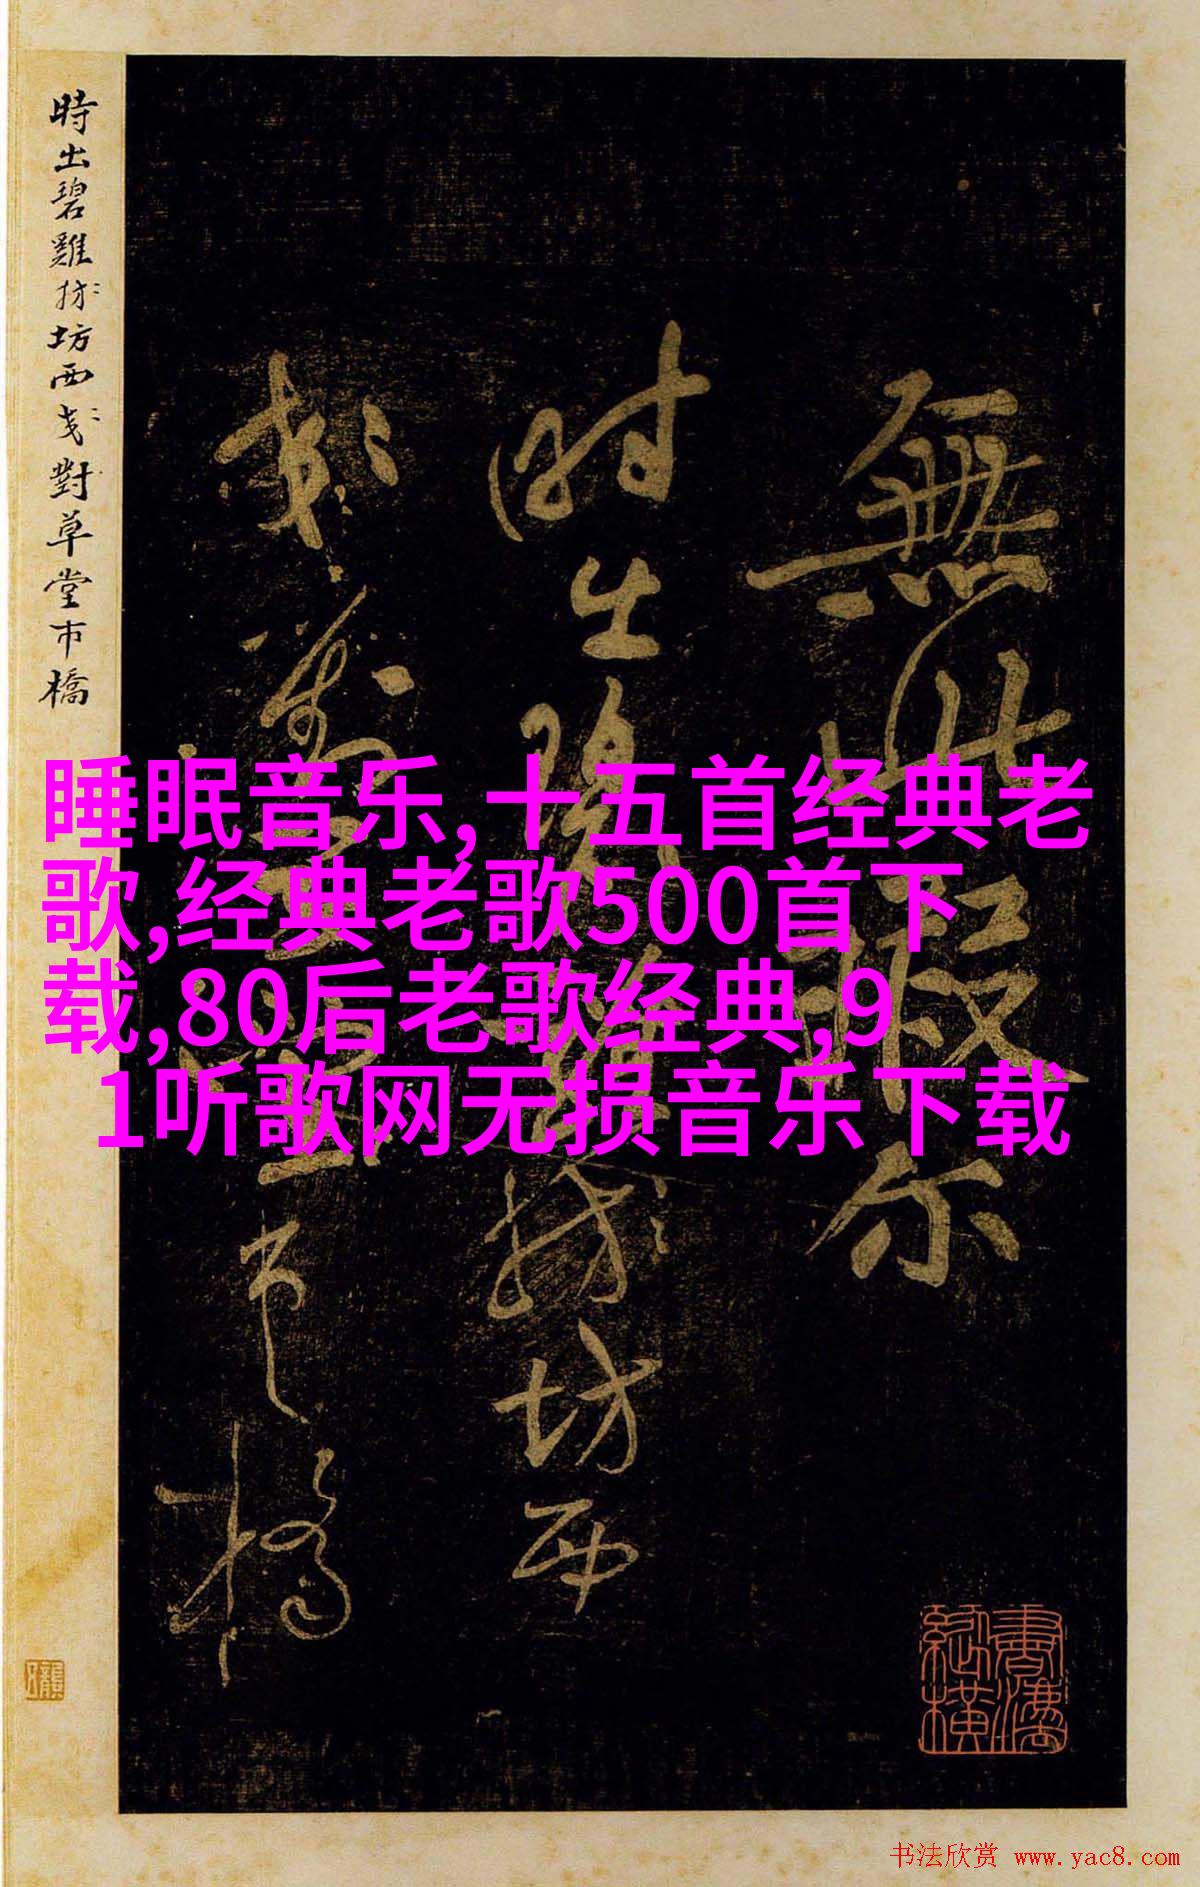 時出碧雞坊西對草堂市橋
無此假尔
時出碧坊西
市橋
睡眠音乐,十五首经典老
歌,经典老歌500首下
载,80后老歌经典,9
1听歌网无损音乐下载
书法欣赏 www.yac8.com